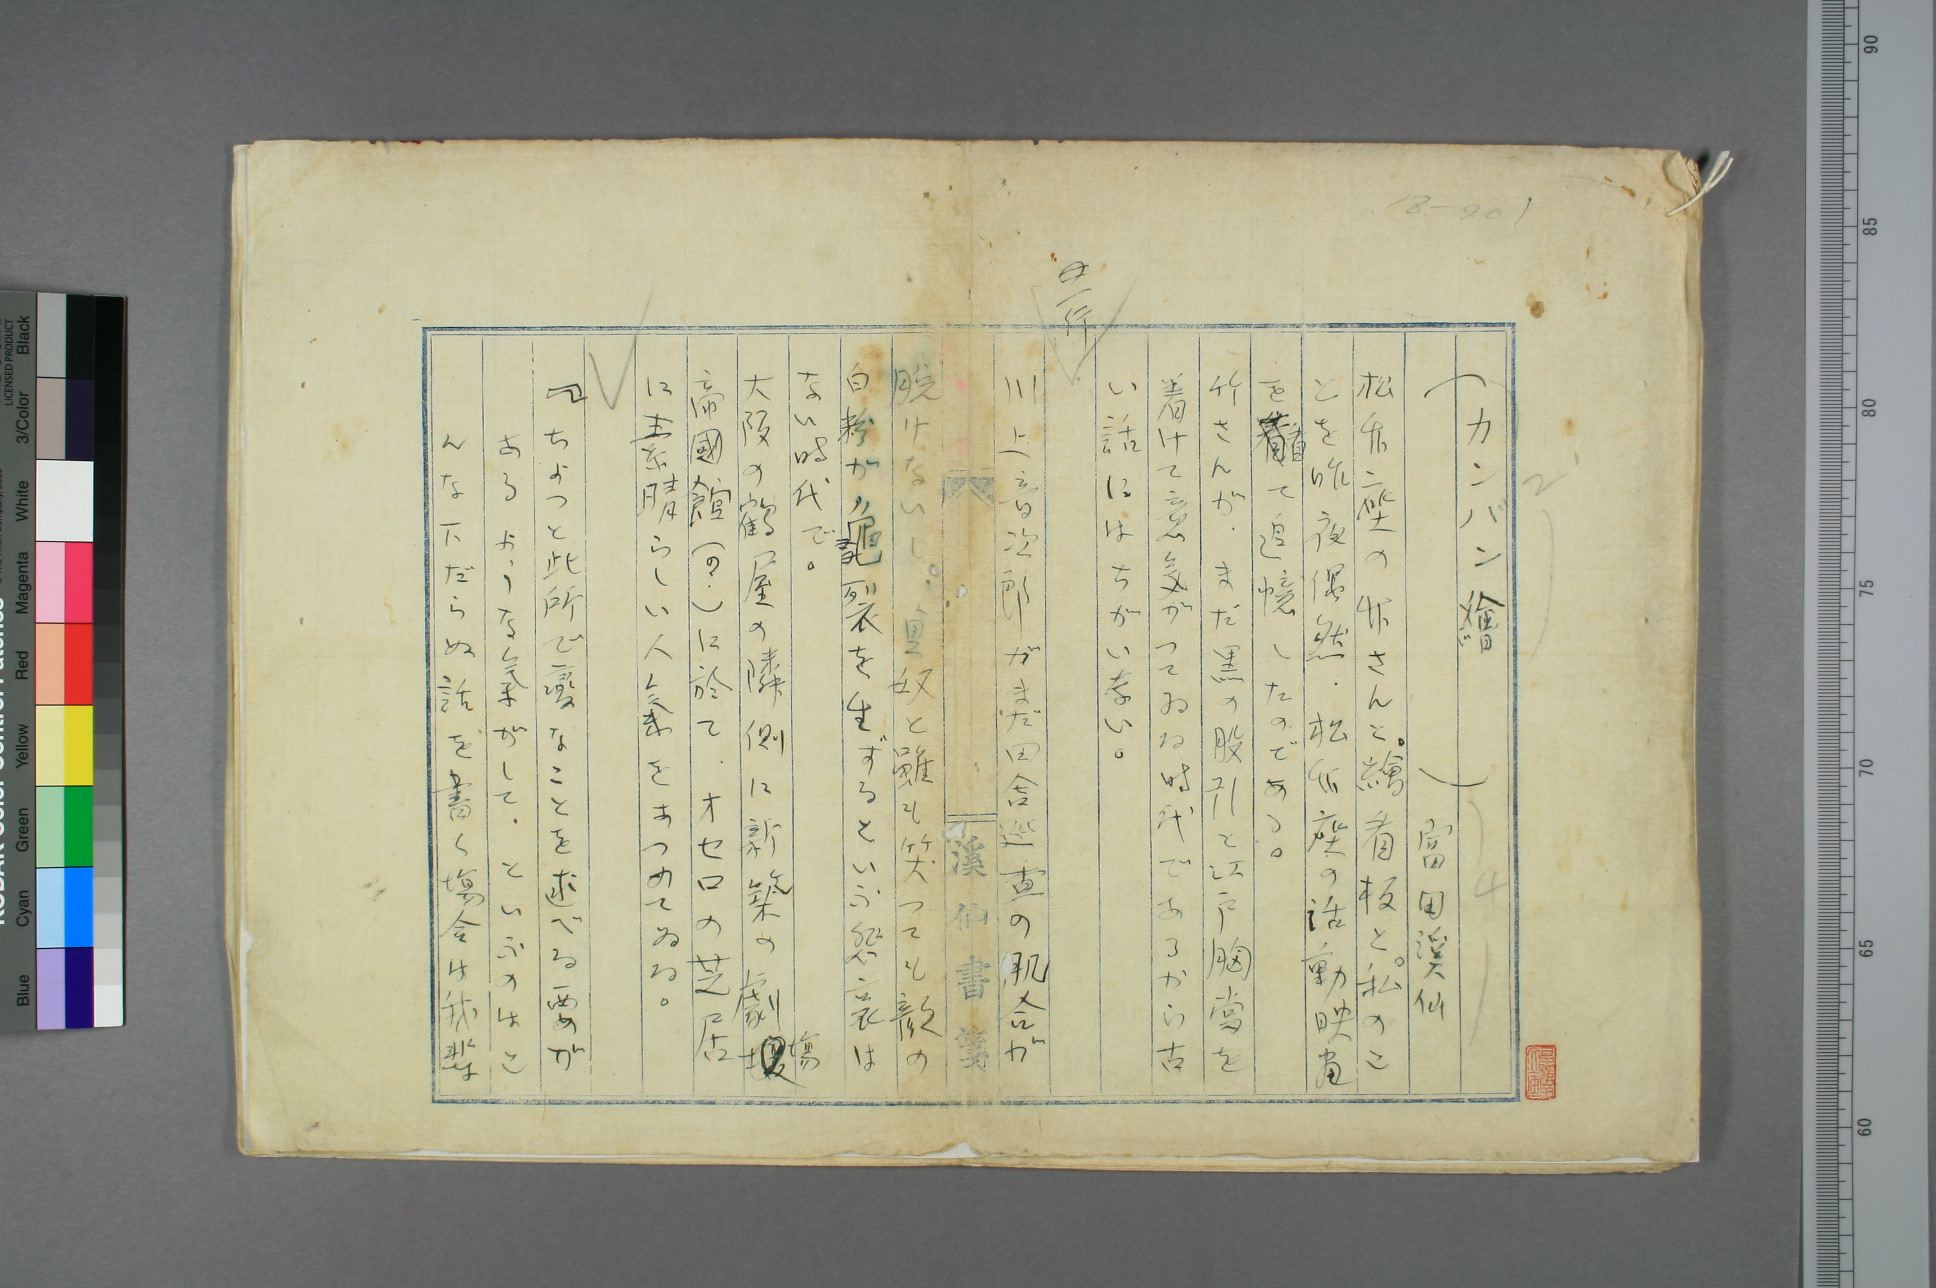 カンバン繪
冨田溪仙
松竹座の竹さんと。繪看板と。私のこ
とを昨夜偶然．松竹座の活動映画
を看て追憶したのである。
竹さんが．まだ黒の股引と江戸胸當を
着けて意気がつてゐる時代であるから古
い話にはちがいない。
川上音次郎がまだ田舎巡査の肌合が
脱けないし。貞奴と雖も笑つても歓の
白粉が亀裂を生ずるといふ愁哀は
ない時代で。
大阪の鶴屋の隣側に新築の劇場
帝國館(の．)に於て．オセロの芝居
に素晴らしい人気をあつめてゐる。
ちよつと此所で変なことを述べる要が
あるような気がして．といふのはこ
んな下だらぬ話を書く場合は我輩
溪仙書箋
18-901
Black
3/Color
White
Magenta
Red
Yellow
Green
Cyan
Blue
LICENSED PRODUCT
90
85
80
75
70
65
60